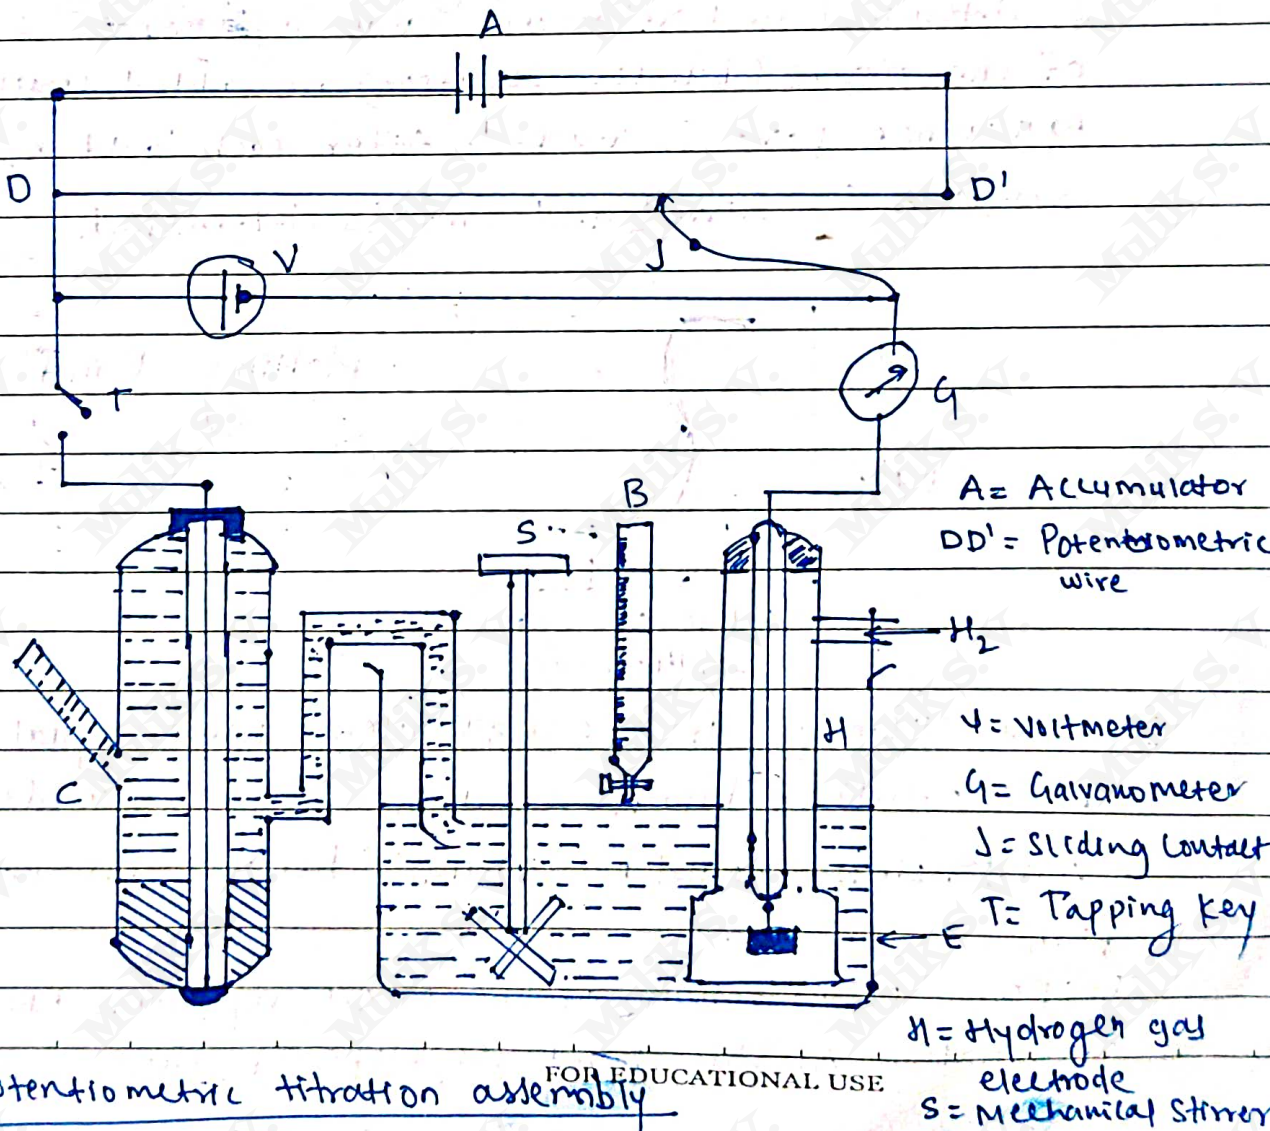 A
D
D'
J
V
T
G
B
S
A= Accumulator
DD'= Potentiometric
wire
H2
H
V= Voltmeter
C
G= Galvanometer
J= Sliding Contact
T= Tapping Key
E
H= Hydrogen gas
electrode
S= Mechanical Stirrer
otentiometric titration assembly
FOR EDUCATIONAL USE
Mulik S. V.